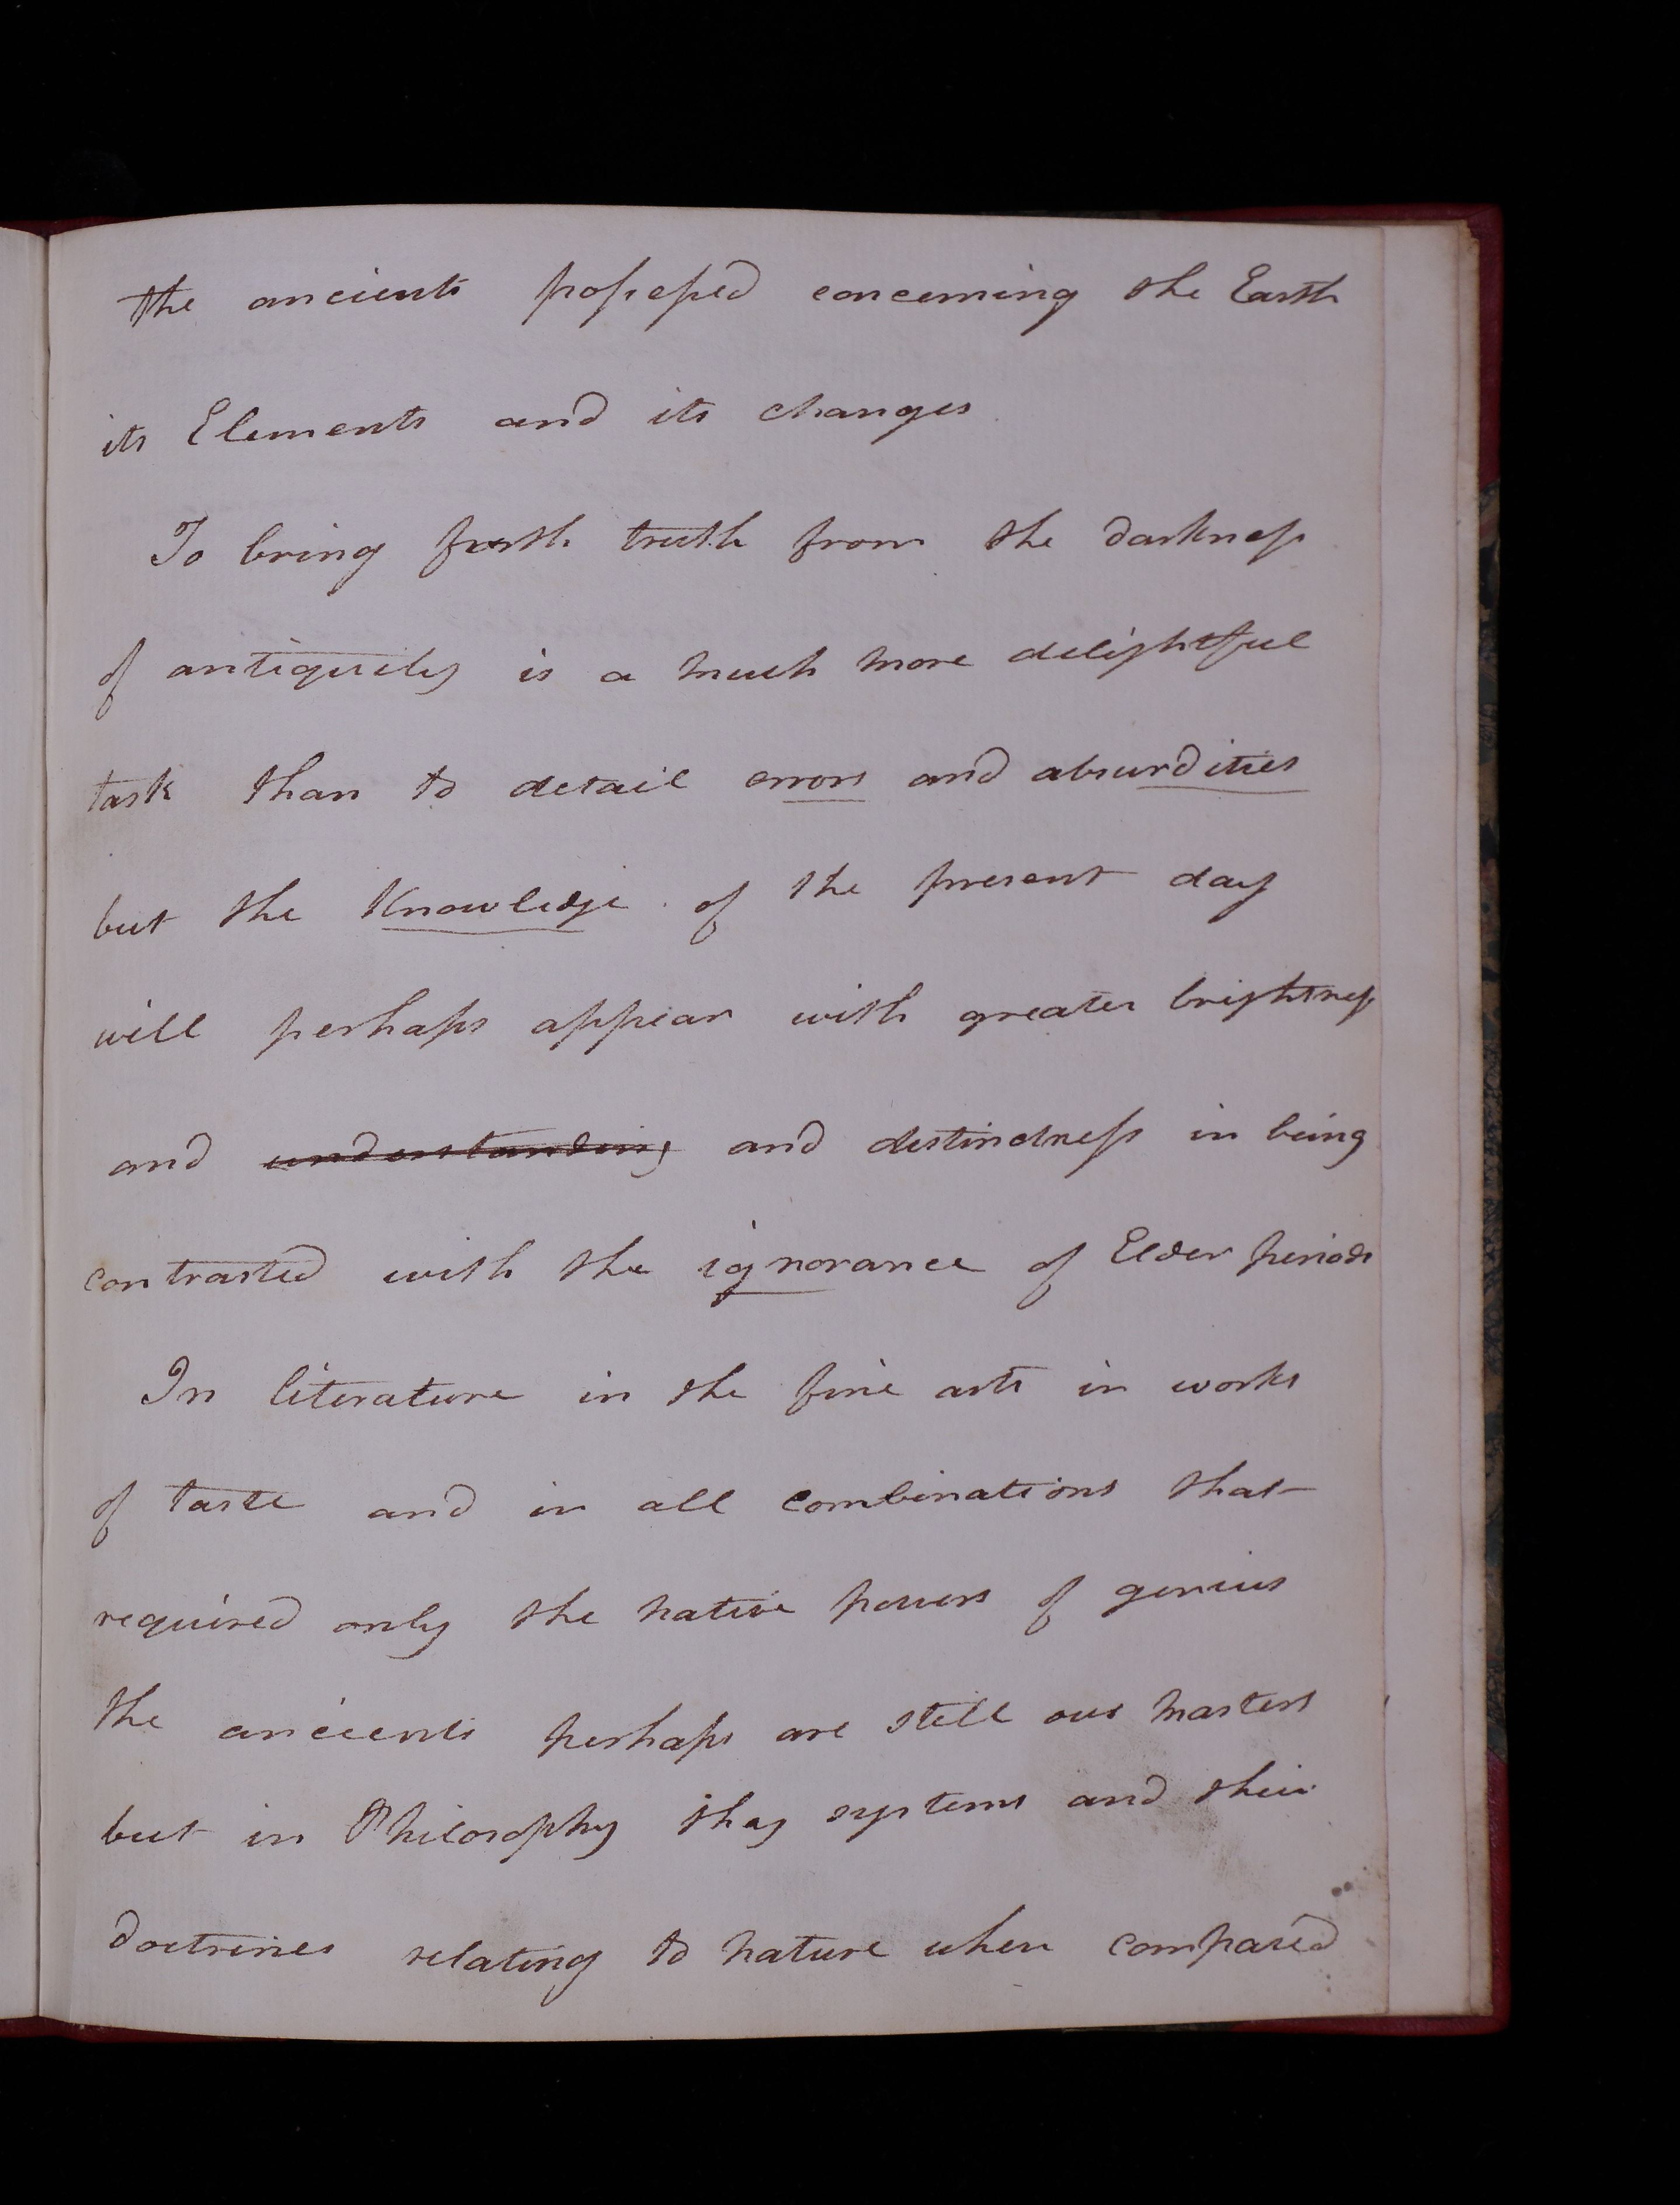 the ancients possessed concerning the Earth
its Elements and its changes
To bring forth truth from the darkness
of antiquity is a much more delightful
task than to detail errors and absurdities
but the Knowledge of the present day
will perhaps appear with greater brightness
and understanding and distinctness in being
contrasted with the ignorance of Elder periods
In literature in the fine arts in works
of taste and in all combinations that
required only the native powers of genius
the ancients perhaps are still our masters
but in Philosophy thay systems and their
doctrines relating to nature when compared